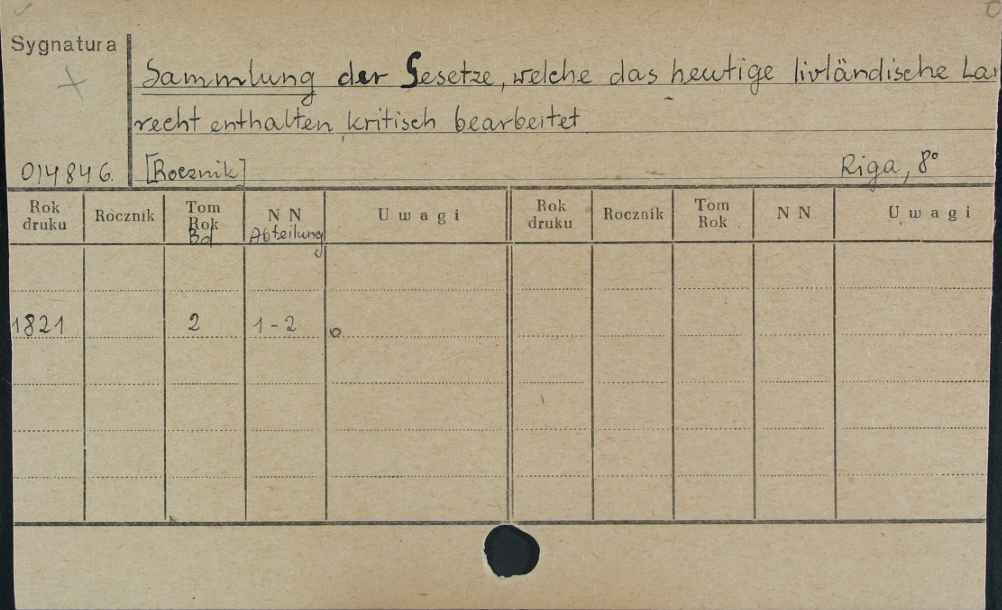 Sygnatura
Sammlung der Gesetze, welche das heutige livländische La
recht enthalten kritisch bearbeitet
014846. [Rocznik] Riga, 8°
Rok druku Rocznik Tom Rok Bd N N Abteilung Uwagi Rok druku Rocznik Tom Rok N N Uwagi
1821 2 1-2